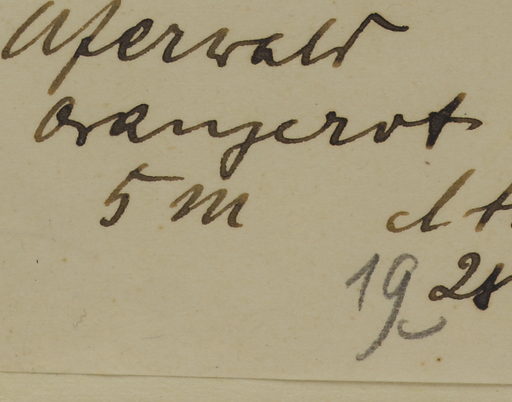 Uferwald
orangerot
5 m
19 28